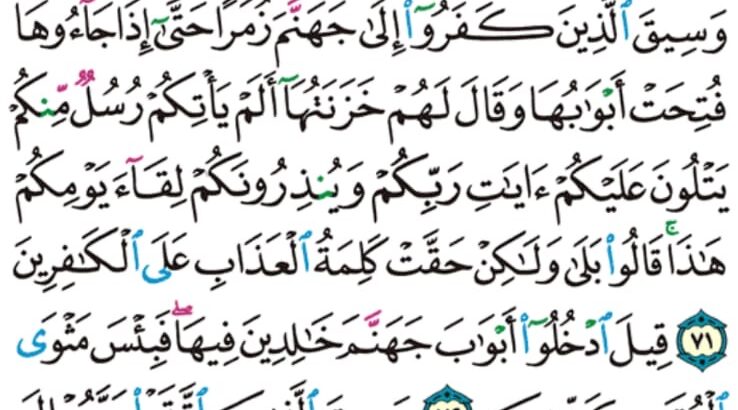 وَسِيقَ ٱلَّذِينَ كَفَرُوٓا۟ إِلَىٰ جَهَنَّمَ زُمَرًا حَتَّىٰٓ إِذَا جَآءُوهَا
فُتِحَتْ أَبْوَٰبُهَا وَقَالَ لَهُمْ خَزَنَتُهَآ أَلَمْ يَأْتِكُمْ رُسُلٌ مِّنكُمْ
يَتْلُونَ عَلَيْكُمْ ءَايَٰتِ رَبِّكُمْ وَيُنذِرُونَكُمْ لِقَآءَ يَوْمِكُمْ
هَٰذَا ۚ قَالُوا۟ بَلَىٰ وَلَٰكِنْ حَقَّتْ كَلِمَةُ ٱلْعَذَابِ عَلَى ٱلْكَٰفِرِينَ
٧١ قِيلَ ٱدْخُلُوٓا۟ أَبْوَٰبَ جَهَنَّمَ خَٰلِدِينَ فِيهَا ۖ فَبِئْسَ مَثْوَى